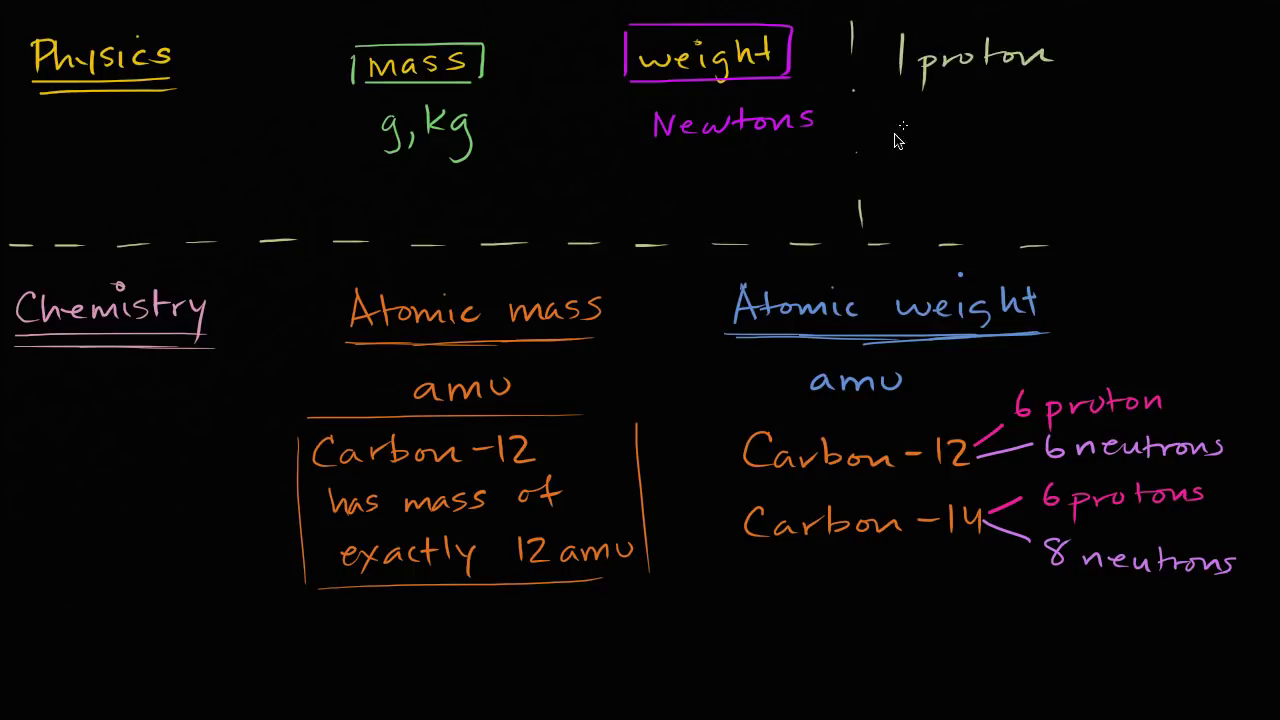 Physics
mass
g, kg
weight
Newtons
1 proton
Chemistry
Atomic mass
amu
Carbon-12
has mass of
exactly 12 amu
Atomic weight
amu
Carbon-12
6 proton
6 neutrons
Carbon-14
6 protons
8 neutrons